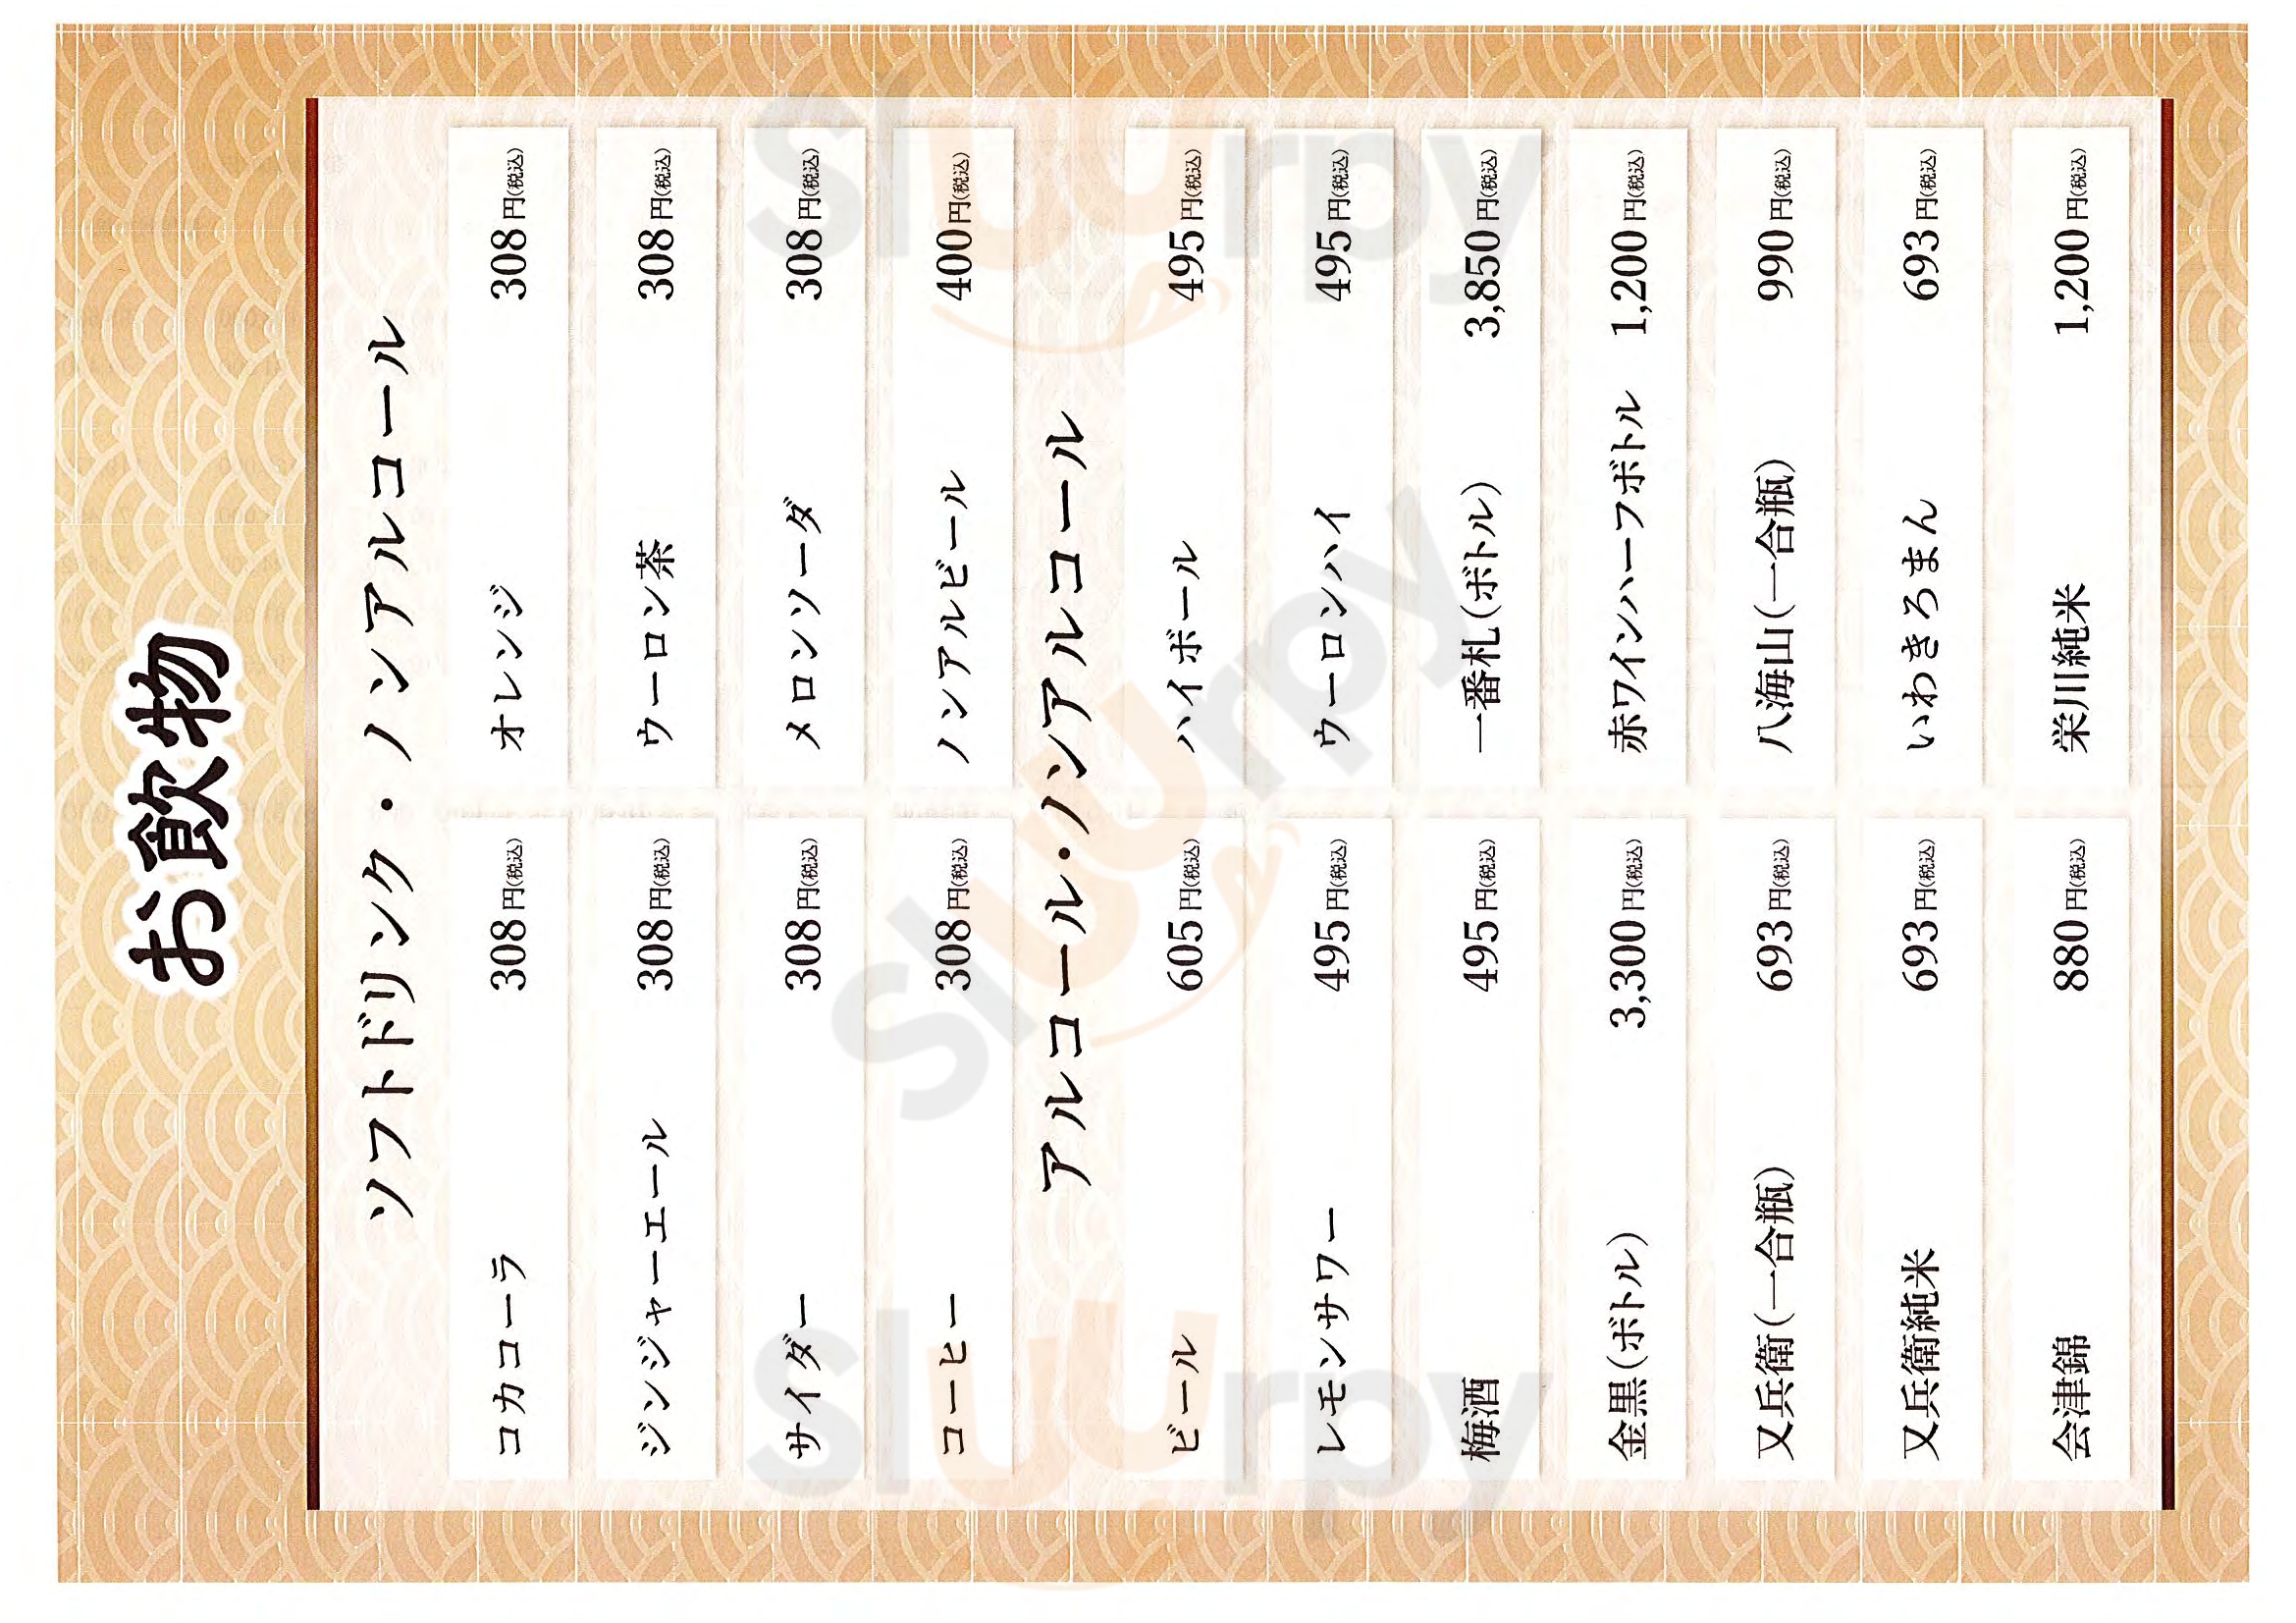 お飲物
ソフトドリンク・ノンアルコール
コカコーラ 308円(税込)
オレンジ 308円(税込)
ジンジャーエール 308円(税込)
ウーロン茶 308円(税込)
サイダー 308円(税込)
メロンソーダ 308円(税込)
コーヒー 308円(税込)
ノンアルビール 400円(税込)
アルコール・ノンアルコール
ビール 605円(税込)
ハイボール 495円(税込)
レモンサワー 495円(税込)
ウーロンハイ 495円(税込)
梅酒 495円(税込)
一番札(ボトル) 3,850円(税込)
金黒(ボトル) 3,300円(税込)
赤ワインハーフボトル 1,200円(税込)
又兵衛(一合瓶) 693円(税込)
八海山(一合瓶) 990円(税込)
又兵衛純米 693円(税込)
いわきろまん 693円(税込)
会津錦 880円(税込)
栄川純米 1,200円(税込)
sluurpy
sluurpy
sluurpy